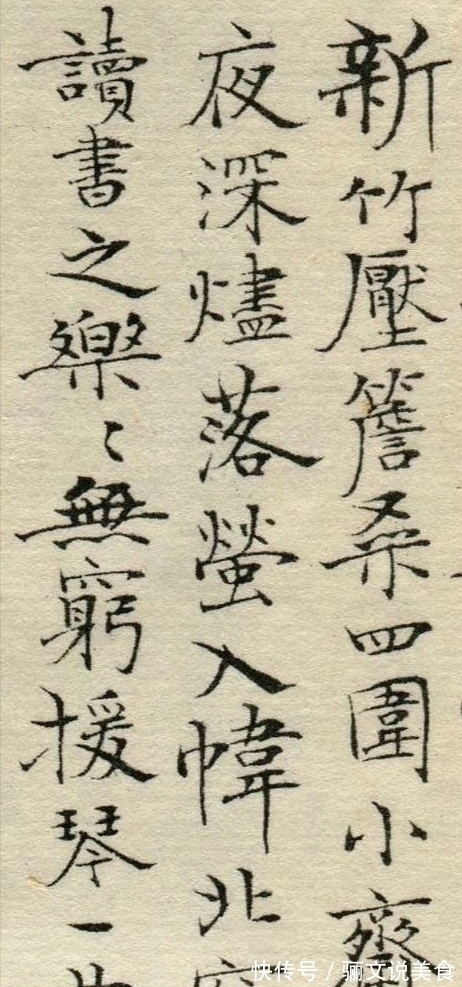 新竹壓簷桑四圍小齋
夜深燼落螢入幃北
讀書之樂〻無窮援琴一
快传号/骊文说美食